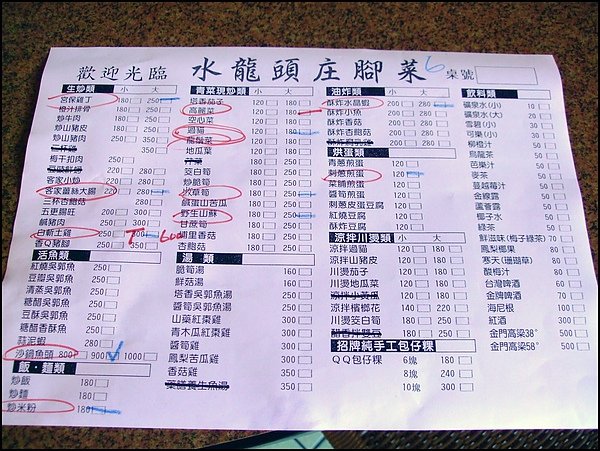 歡迎光臨 水龍頭庄腳菜 6 桌號
生炒類 小 大
宮保雞丁 180 250
橙汁排骨 180 250
炒牛肉 180 250
炒山豬皮 180 250
炒山豬肉 250 350
350
梅干扣肉 250
客家小炒 220 250
客家薑絲大腸 220 280
三杯杏鮑菇 280
五更腸旺 200 300
鹹豬肉 200 300
白斬土雞 300 600
香Q豬腳 250 350
活魚類
紅燒吳郭魚 250
豆瓣吳郭魚 250
清蒸吳郭魚 250
糖醋吳郭魚 250
豆酥吳郭魚 250
糖醋香酥魚 250
蒜泥蝦 280
沙鍋魚頭 800 900 1000
飯．麵類
炒飯 180
炒麵 180
炒米粉 180
青菜現炒類 小 大
塔香茄子 120 180
高麗菜 120 180
空心菜 120 180
過貓 120 180
龍鬚菜 120 180
地瓜葉 120 180
120 180
筊白筍 120 180
炒脆筍 120 180
炊草菇 120 180
鹹蛋山苦瓜 120 180
野生山蘇 120 180
甘蔗筍 120 180
埔里香菇 120 180
杏鮑菇 120 180
湯類
脆筍湯 160
鮮菇湯 180
塔香吳郭魚湯 250
醬筍吳郭魚湯 250
山藥紅棗雞 300
青木瓜紅棗雞 300
醬筍雞 300
鳳梨苦瓜雞 350
香菇雞 350
藥膳養生魚湯 350
油炸類 小 大
酥炸水晶蝦 200 280
酥炸小魚 200 280
酥炸香菇 200 280
酥炸杏鮑菇 200 280
200 280
烘蛋類
青蔥煎蛋 120
刺蔥煎蛋 120
菜脯煎蛋 120
醬筍煎蛋 120
刺蔥皮蛋豆腐 120
紅燒豆腐 120
酥炸豆腐 120
涼拌川燙類 小 大
涼拌過貓 120 180
涼拌山豬皮 120 180
川燙茄子 120 180
川燙地瓜菜 120 180
涼拌小黃瓜 120 180
涼拌檳榔花 140 220
川燙筊白筍 120 180
120 180
招牌純手工包仔粿
QQ包仔粿 6塊 180
8塊 240
10塊 300
飲料類
礦泉水(小) 10
礦泉水(大) 20
雪碧(小) 30
可樂(小) 30
柳橙汁 50
烏龍茶 50
芒果汁 50
麥茶 50
蔓越莓汁 50
金線露 50
蘆薈露 50
椰子水 50
綠茶 50
鮮滋味(梅子綠茶) 70
鳳梨椰果 80
寒天(珊瑚草) 80
酸梅汁 80
台灣啤酒 60
金牌啤酒 70
海尼根 100
紅酒 300
金門高梁38° 500
金門高梁58° 500